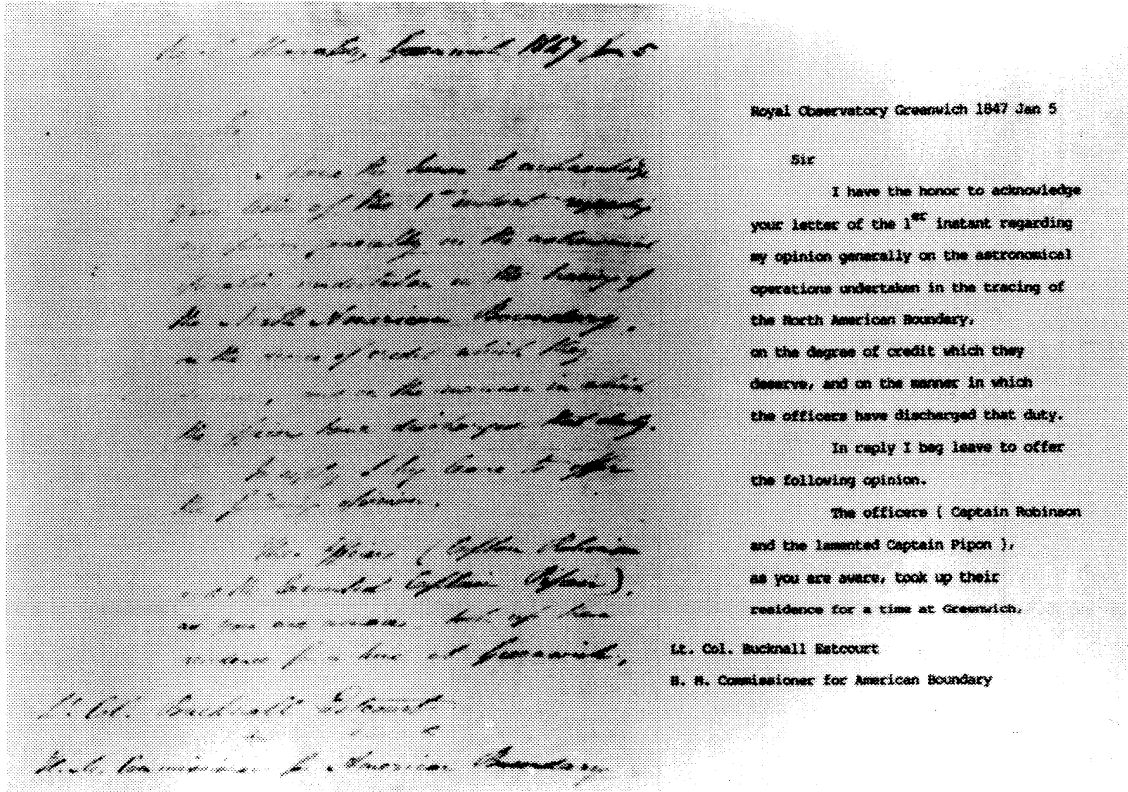 Royal Observatory, Greenwich 1847 Jan 5
I have the honor to acknowledge
your letter of the 1st instant regarding
my opinion generally on the astronomical
operations undertaken in the tracing of
the North American Boundary,
on the degree of credit which they
deserve, and on the manner in which
the officers have discharged that duty.
In reply I beg leave to offer
the following opinion.
The officers (Captain Robinson
and the lamented Captain Pipon),
as you are aware, took up their
residence for a time at Greenwich,
Lt. Col. Bucknall Estcourt
H. M. Commissioner for American Boundary
Royal Observatory Greenwich 1847 Jan 5
Sir
I have the honor to acknowledge
your letter of the 1er instant regarding
my opinion generally on the astronomical
operations undertaken in the tracing of
the North American Boundary,
on the degree of credit which they
deserve, and on the manner in which
the officers have discharged that duty.
In reply I beg leave to offer
the following opinion.
The officers ( Captain Robinson
and the lamented Captain Pipon ),
as you are aware, took up their
residence for a time at Greenwich,
Lt. Col. Bucknall Estcourt
H. M. Commissioner for American Boundary